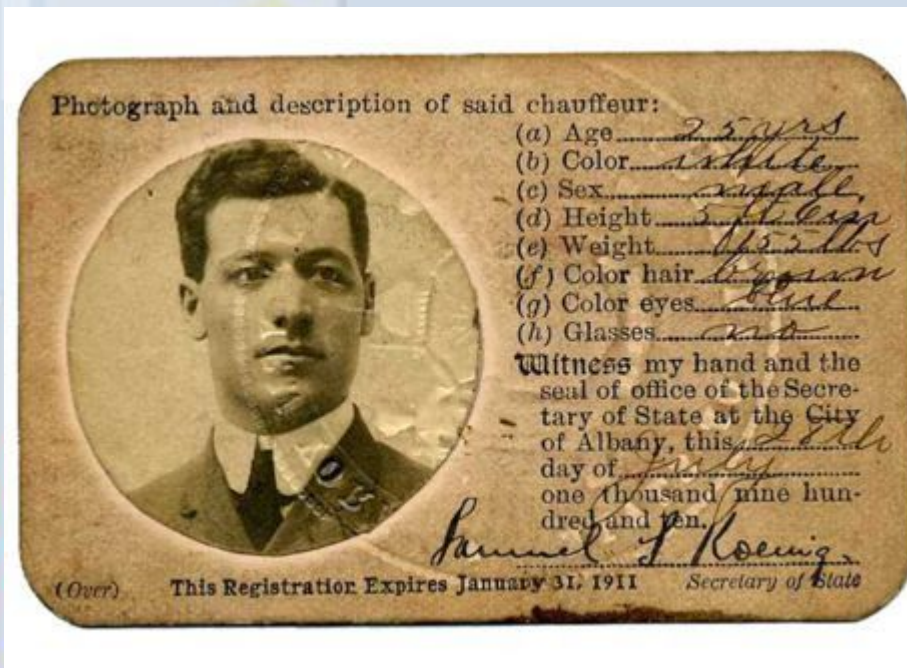 Photograph and description of said chauffeur:
(a) Age 25 yrs
(b) Color white
(c) Sex male
(d) Height 5 ft 6 in
(e) Weight 155 lbs
(f) Color hair brown
(g) Color eyes blue
(h) Glasses no
Witness my hand and the
seal of office of the Secre-
tary of State at the City
of Albany, this
day of July
one thousand nine hun-
dred and ten.
Samuel S Koenig
(Over) This Registration Expires January 31, 1911 Secretary of State